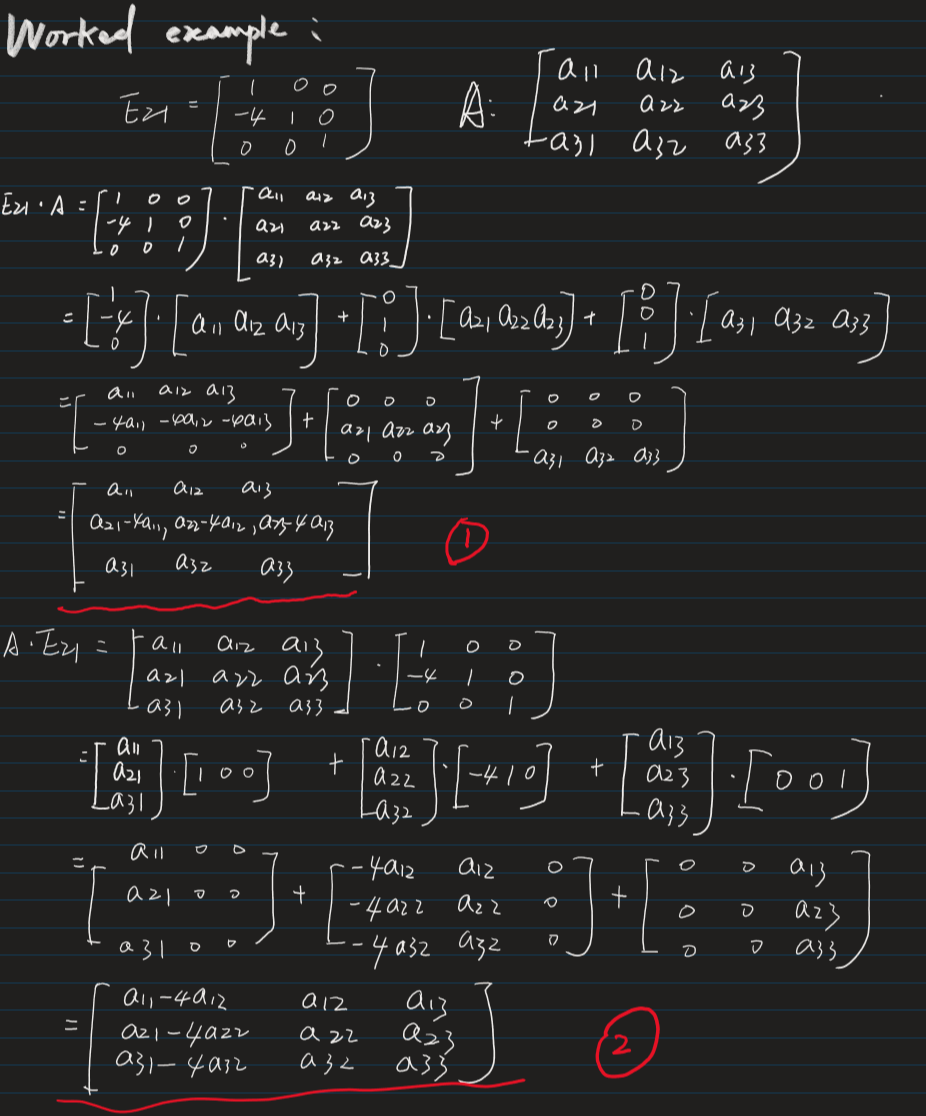 Worked example :
E21 = [ 1 0 0 A: [ a11 a12 a13
-4 1 0 a21 a22 a23
0 0 1 ] a31 a32 a33 ]
E21 · A = [ 1 0 0 ] · [ a11 a12 a13
-4 1 0 a21 a22 a23
0 0 1 a31 a32 a33 ]
= [ 1 -4 0 ] · [ a11 a12 a13 ] + [ 0 1 0 ] · [ a21 a22 a23 ] + [ 0 0 1 ] · [ a31 a32 a33 ]
= [ a11 a12 a13 + [ 0 0 0 + [ 0 0 0
-4a11 -4a12 -4a13 a21 a22 a23 0 0 0
0 0 0 ] 0 0 0 ] a31 a32 a33 ]
= [ a11 a12 a13
a21-4a11, a22-4a12, a23-4a13 1
a31 a32 a33 ]
A · E21 = [ a11 a12 a13 · [ 1 0 0
a21 a22 a23 -4 1 0
a31 a32 a33 ] 0 0 1 ]
= [ a11 a21 a31 ] · [ 1 0 0 ] + [ a12 a22 a32 ] · [ -4 1 0 ] + [ a13 a23 a33 ] · [ 0 0 1 ]
= [ a11 0 0 + [ -4a12 a12 0 + [ 0 0 a13
a21 0 0 -4a22 a22 0 0 0 a23
a31 0 0 ] -4a32 a32 0 ] 0 0 a33 ]
= [ a11-4a12 a12 a13
a21-4a22 a22 a23 2
a31-4a32 a32 a33 ]